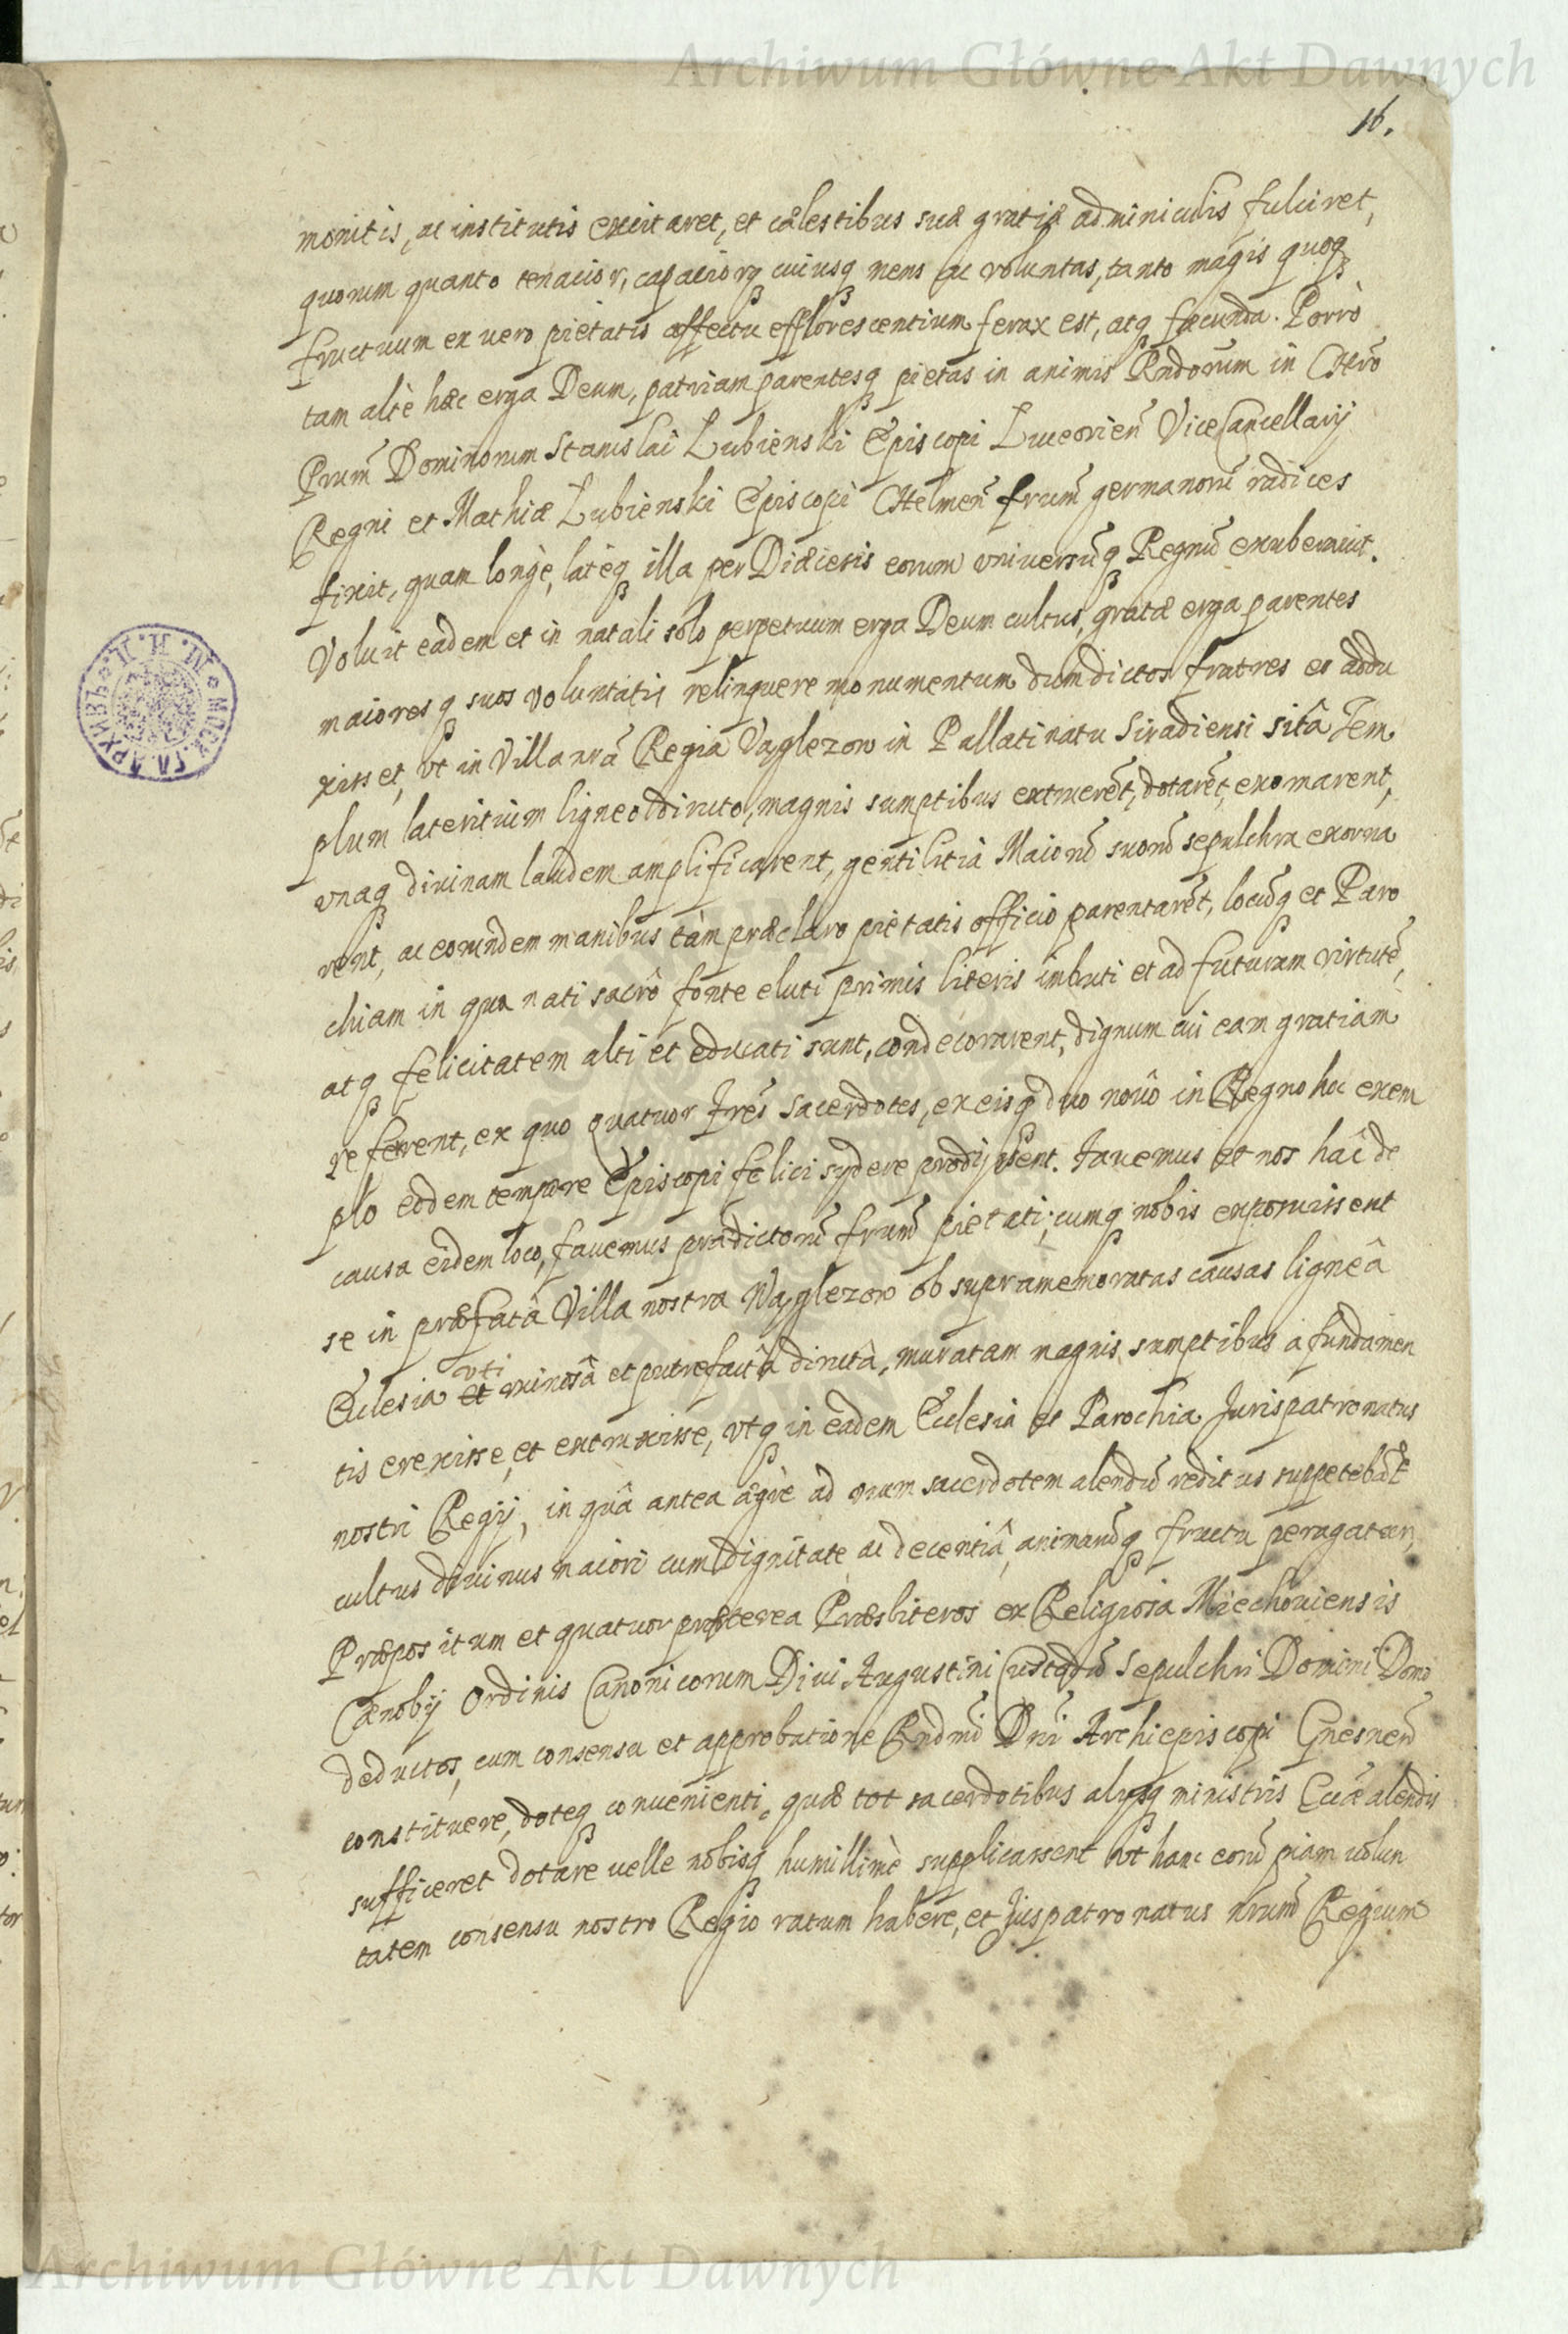 Archiwum Główne Akt Dawnych
16.
monitis, ac institutis excitaret, et cælestibus suæ gratiæ adminiculis fulciret,
quorum quanto tenacior, capaciorq cuiusq mens ac voluntas, tanto magis quoq
fructuum ex vero pietatis affectu efflorescentium ferax est, atq fæcunda. Porrò
tam altè hæc erga Deum, patriam parentesq pietas in animis Rndorum in Chro
Prum Dominorum Stanislai Lubienski Episcopi Luceorien Vice Cancellarij
Regni et Mathiæ Lubienski Episcopi Chelmen frum germanorũ radices
fixit, quam longè, latèq illa per Diæcesis eorum vniversũq Regnũ exuberavit.
Voluit eadem et in natali solo perpetuum erga Deum cultus, gratæ erga parentes
maioresq suos voluntatis relinquere monumentum dum dictos fratres eo addu
xisset, vt in Villa nrâ Regia Vaglezow in Pallatinatu Siradiensi sitâ Tem
plum lateritium ligneo diruto, magnis sumptibus extruerẽt, dotarẽt, exornarent,
vnaq divinam laudem amplificarent, gentilitia Maiorũ suorũ sepulchra exorna
rent, ac eorundem manibus tàm præclaro pietatis officio parentarẽt, locũq et Paro
chiam in qua nati sacrô fonte eluti primis literis imbuti et ad futuram virtutẽ,
atq felicitatem alti et educati sunt, condecorarent, dignum cui eam gratiam
referrent, ex quo quatuor frẽs sacerdotes, ex eisq duo novô in Regno hoc exem
plo eodem tempore Episcopi felici sydere prodijssent. Favemus et nos hâc de
causa eidem loco, favemus prædictorũ frum pietati, cumq nobis exposuissent
se in præfatâ Villa nostra Waglezow ob supramemoratas causas ligneâ
vti
Ecclesia et ruinosâ et putrefactâ dirutâ, muratam magnis sumptibus a fundamen
tis erexisse, et extruxisse, vtq in eadem Ecclesia et Parochia Jurispatronatus
nostri Regij, in quâ antea ægrè ad vnum sacerdotem alendũ reditus suppetebãt
cultus divinus maiori cum dignitate ac decentiâ, animarũq fructu peragatur,
Præpositum et quatuor præterea Præsbiteros ex Religiosa Miechoviensis
Cænobij Ordinis Canonicorum Divi Augustini Custodũ Sepulchri Domini Domo
deductos, cum consensu et approbatione Rndmi Dni Archiepiscopi Gnesnen
constituere, doteq convenienti, quæ tot sacerdotibus alijsq ministris Eccæ alendis
sufficeret dotare velle nobisq humillimè supplicassent vt hanc eorũ piam volun
tatem consensu nostro Regio ratum habere, et Juspatronatus nrum Regium
Archiwum Główne Akt Dawnych